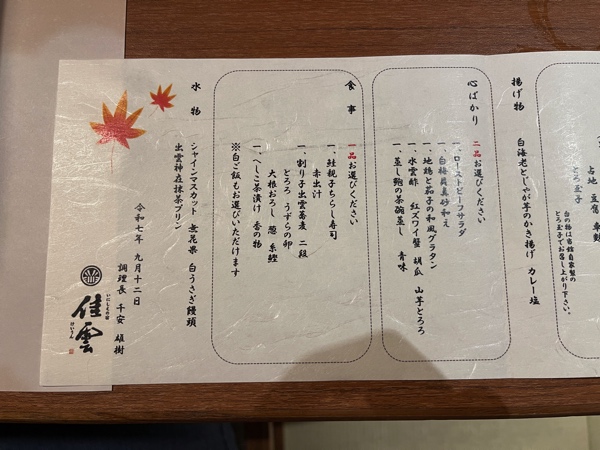 占地 豆腐
とろ玉子
白の物は当館自家製の
とろ玉子でお召し上がり下さい。
揚げ物
白海老とじゃが芋のかき揚げ カレー塩
心ばかり
二品お選びください
一、ローストビーフサラダ
一、白梅貝真砂和え
一、地鶏と茄子の和風グラタン
一、水雲酢 紅ズワイ蟹 胡瓜 山芋とろろ
一、蒸し鮑の茶碗蒸し 青味
食事
一品お選びください
一、鮭親子ちらし寿司
赤出汁
一、割り子出雲蕎麦 二段
とろろ うずらの卵
大根おろし 葱 糸鰹
一、へしこ茶漬け 香の物
※白ご飯もお選びいただけます
水物
シャインマスカット 無花果 白うさぎ饅頭
出雲神在抹茶プリン
令和七年 九月十二日
調理長 千安 雄樹
いにしえの宿
佳雲
けいうん